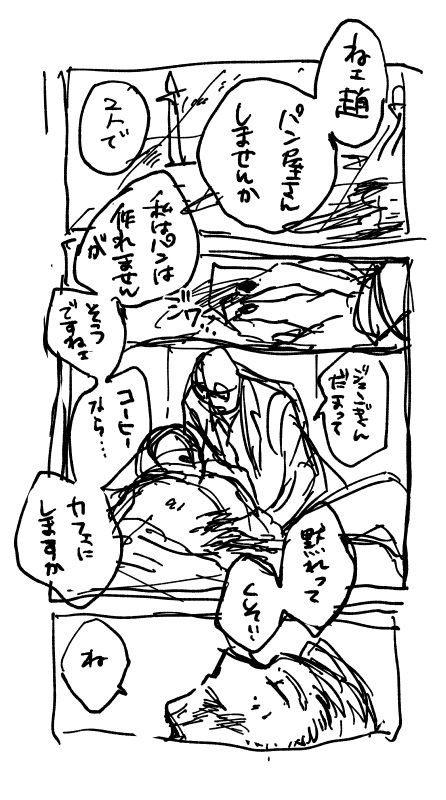 ねェ趙
パン屋さん
しませんか
2人で
私はパンは
作れません
が
ジワ…
そう
ですねェ
コーヒー
なら…
カフェに
しますか
だまって
黙れって
ね